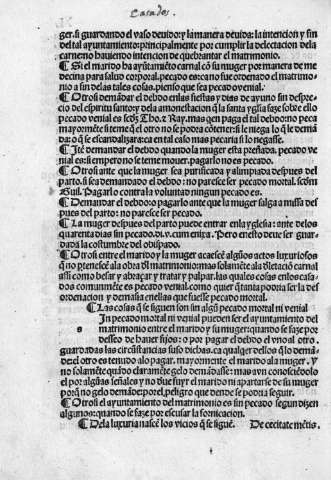 Casados.
ger.si guardando el vaso deuidor y la manera deuida:la intencion y fin
del tal ayuntamiento:principalmente por cumplir la delectacion dela
carne:no hauiendo intencion de quebrantar el matrimonio.
¶ Si el marido ha ayũtamiẽto carnal cõ su muger por manera de me
decina para salud corporal.pecado es:ca no fue ordenado el matrimo-
nio a fin delas tales cosas.pienso que sea pecado venial.
¶ Otrosi demãdar el debdo enlas fiestas y dias de ayuno sin despre-
cio del espiritu santo:y dela amonestacion q̃ la santa yglesia faze sobre ello
pecado venial es scđm Tho.z Ray.mas q̃en paga el tal debdo:no peca
mayormẽte si teme q̃ el otro no se podra cõtener:si le niega lo q̃ le demã
da:o q̃ se escandalizara:ca en tal caso mas pecaria si lo negasse.
¶ Itẽ demandar el debdo quando la muger esta preñada.pecado ve
nial es:si empero no se teme mouer.pagarlo no es pecado.
¶ Otrosi ante que la muger sea purificada y alimpiada despues del
parto.si sea demandado el debdo: no paresce ser pecado mortal.scđm
Guil.Pagarlo contra la voluntad:ningun pecado es.
¶ Demandar el debdo:o pagarlo ante que la muger salga a missa des
pues del parto:no paresce ser pecado.
¶ La muger despues del parto puede entrar enla yglesia:ante delos
quarenta dias sin pecado.di.v.cum enixa. Pero enesto deue ser guar-
dada la costumbre del obispado.
¶ Otrosi entre el marido y la muger acaescẽ algũos actos luxuriosos
q̃ no pertenescẽ ala obra del matrimonio:mas solamẽte ala delectaciõ carnal
assi como besar y abraçar y tratar y palpar.las quales cosas enlos casa-
dos comunmẽte es pecado venial.como quier q̃ tanta podria ser la def
ordenacion y demasia enellas que fuesse pecado mortal.
¶ Las cosas q̃ se siguen son sin algũ pecado mortal ni venial
In pecado mortal ni venial pueden ser el ayuntamiento del
s
matrimonio entre el marido y su muger:quando se faze por
desseo de hauer fijos: o por pagar el debdo el vno al otro.
guardadas las circunstãcias suso dichas.ca qualquier dellos q̃ lo demã-
de:el otro es tenudo alo pagar.mayormẽte el marido ala muger. Y
no solamẽte quãdo claramẽte gelo demãdasse:mas avn conosciẽdolo
el por algũas señales y no deue fuyr el marido ni apartarse de su muger
porq̃ no gelo demãde:por el peligro que dende se podria seguir.
¶ Otrosi el ayuntamiento del matrimonio es sin pecado segun dizen
algunos:quando se faze por escusar la fornicacion.
¶ Dela luxuria nascẽ los vicios q̃ se siguẽ. De cecitate mẽtis.